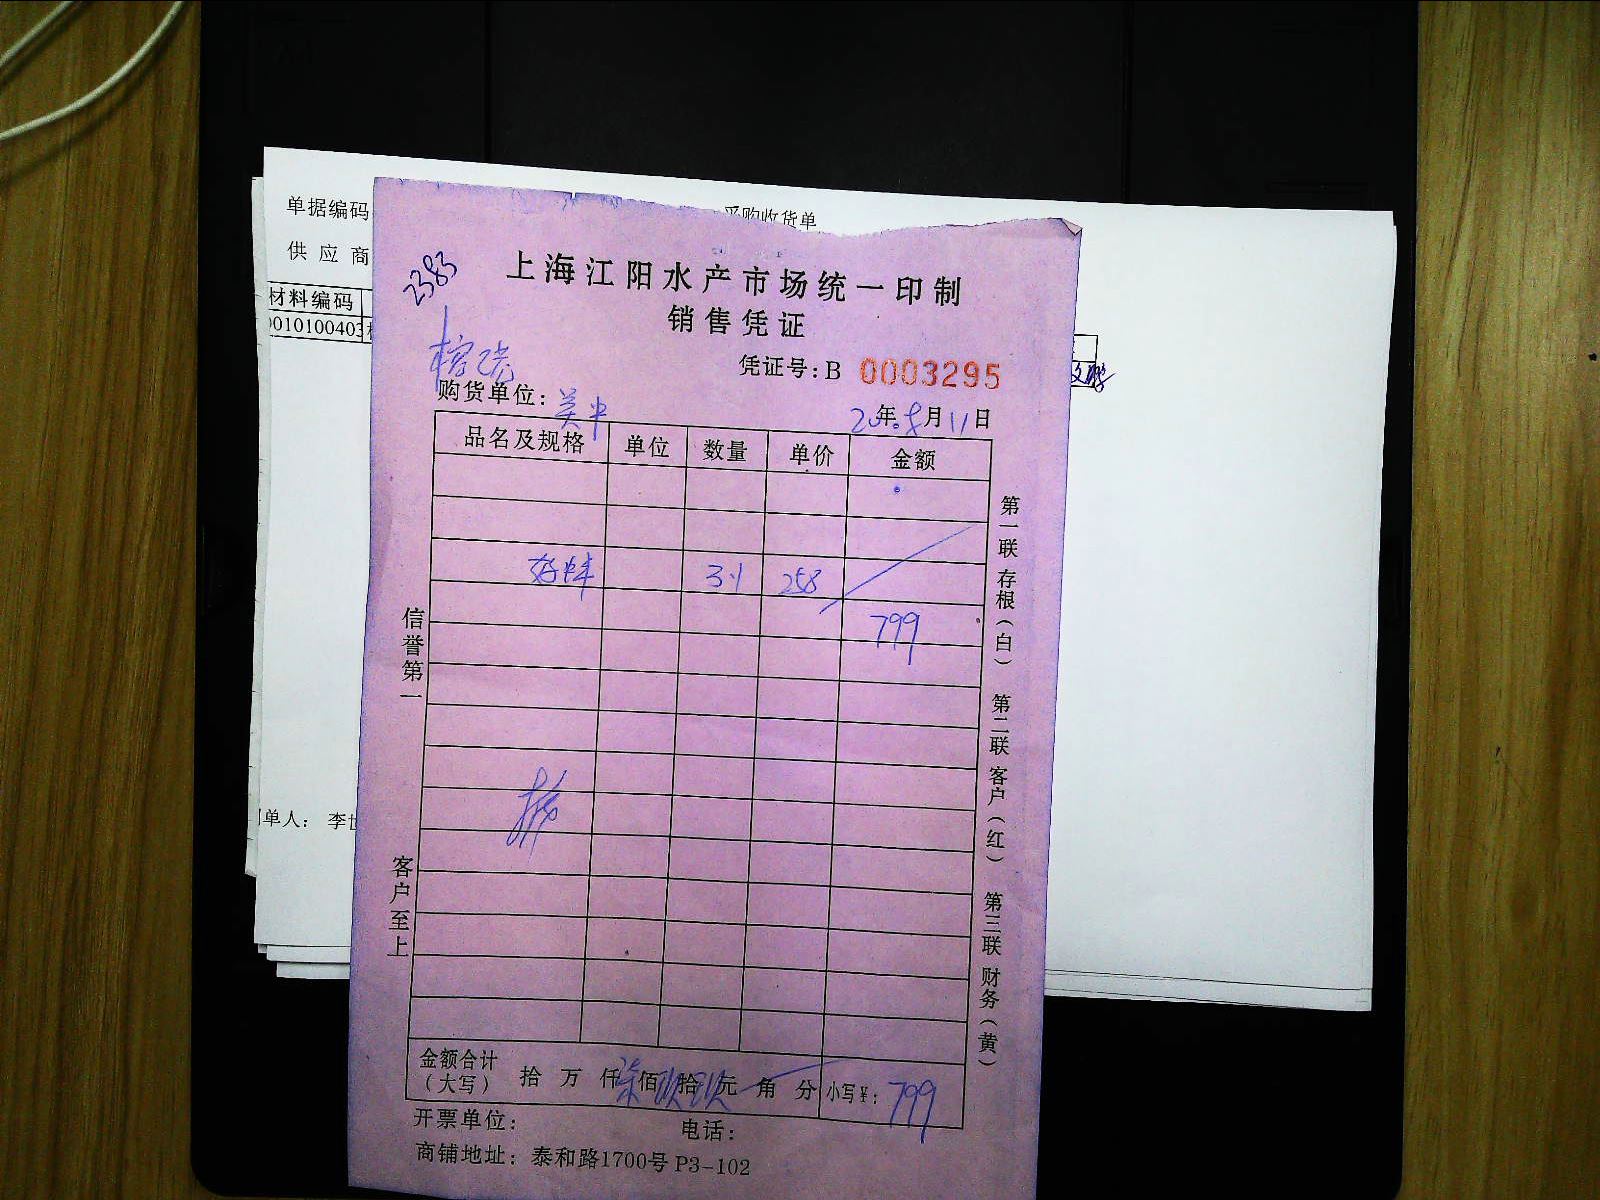 单据编码
采购收货单
供应商
材料编码
0010100403
2383
上海江阳水产市场统一印制
销售凭证
凭证号：B 0003295
购货单位：
20年8月11日
品名及规格 单位 数量 单价 金额
3.1 258
799
信誉第一
客户至上
第一联 存根（白） 第二联 客户（红） 第三联 财务（黄）
单人： 李
金额合计（大写） 拾 万 仟 柒 佰 玖 拾 玖 元 角 分 小写¥：799
开票单位： 电话：
商铺地址：泰和路1700号 P3-102